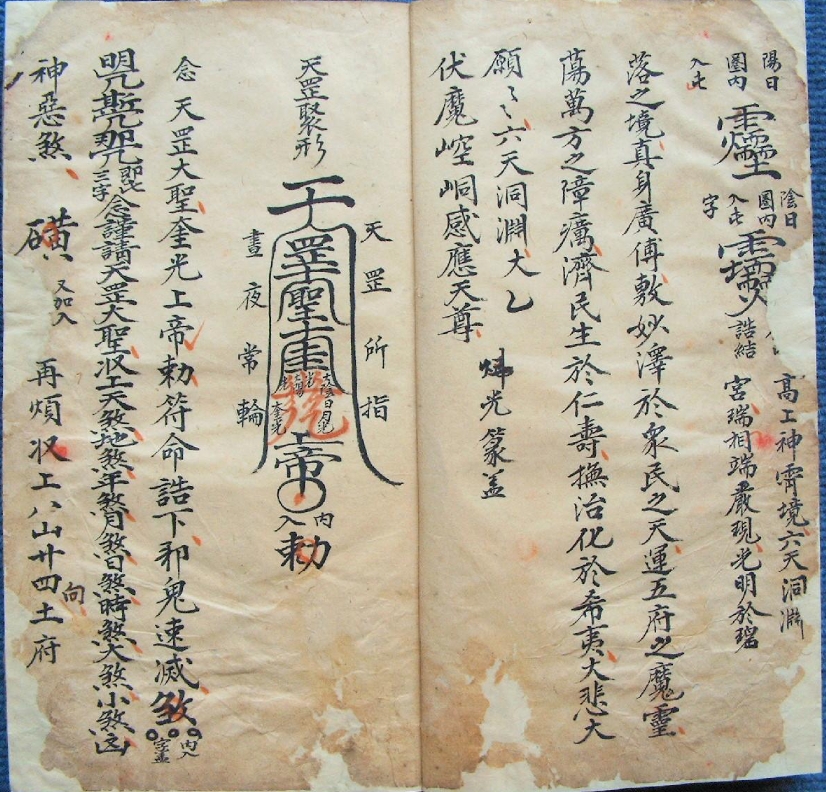 陽日
圈内
入此
陰日
圈内
入此
字
誥結
高工神霄境六天洞渊
宮瑞相端嚴現光明於碧
落之境真身廣傅敷妙澤於衆民之天運五府之魔靈
蕩萬方之障癘濟民生於仁壽撫治化於希夷大悲大
願〻六天洞渊大乙
伏魔崆峒感應天尊
光篆盖
天罡聚形
天罡所指
晝夜常輪
罡聖
帝
内
入
勅
念天罡大聖奎光上帝勅符命誥下邪鬼速滅煞
内入
字盖
三字
念謹請天罡大聖収工天煞地煞年煞月煞日煞時煞大煞小煞凶
神惡煞
又加入
再煩収工八山廿四土府
向